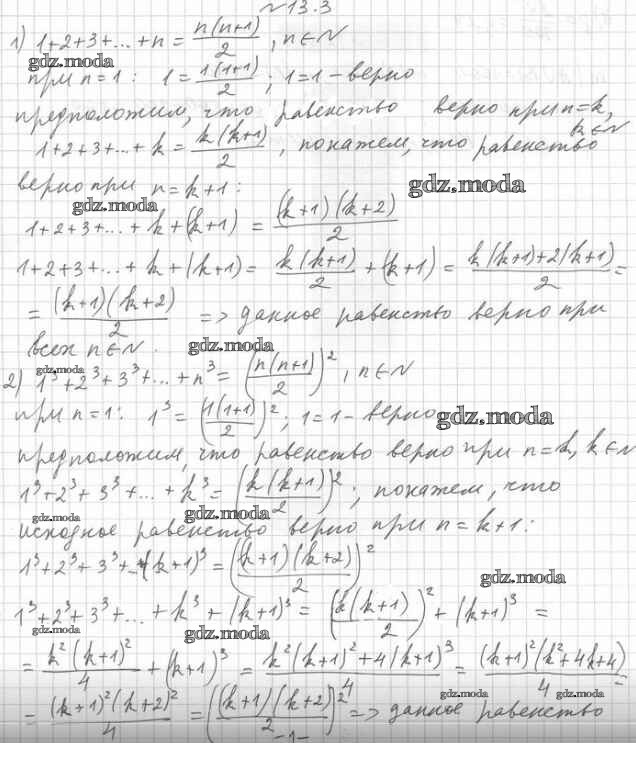 №13.3
1) 1+2+3+...+n = n(n+1)/2 , n∈N
gdz.moda
при n=1: 1 = 1(1+1)/2 ; 1=1 - верно
предположим, что равенство верно при n=k,
k∈N
1+2+3+...+k = k(k+1)/2 , покажем, что равенство
верно при n=k+1:
gdz.moda
gdz.moda
1+2+3+...+k+(k+1) = (k+1)(k+2)/2
1+2+3+...+k+(k+1) = k(k+1)/2 + (k+1) = k(k+1)+2(k+1)/2 =
= (k+1)(k+2)/2 => данное равенство верно при
всех n∈N.
gdz.moda
gdz.moda
2) 1³+2³+3³+...+n³ = (n(n+1)/2)² , n∈N
при n=1: 1³ = (1(1+1)/2)² ; 1=1 - верно
gdz.moda
предположим, что равенство верно при n=k, k∈N
1³+2³+3³+...+k³ = (k(k+1)/2)² ; покажем, что
gdz.moda
gdz.moda
исходное равенство верно при n=k+1:
1³+2³+3³+...+(k+1)³ = ((k+1)(k+2)/2)²
gdz.moda
1³+2³+3³+...+k³+(k+1)³ = (k(k+1)/2)² + (k+1)³ =
gdz.moda
gdz.moda
= k²(k+1)²/4 + (k+1)³ = k²(k+1)²+4(k+1)³/4 = (k+1)²(k²+4k+4)/4 =
gdz.moda
gdz.moda
= (k+1)²(k+2)²/4 = ((k+1)(k+2)/2)² => данное равенство
-1-